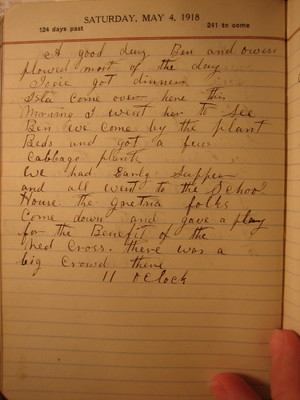 SATURDAY, MAY 4, 1918
124 days past
241 to come
A good day. Ben and owen
plowed most of the day
Josie got dinner
Isla come over here this
Morning I went her to See
Ben we come by the plant
Beds and got a few
Cabbage plants
We had Early Supper
and all went to the School
House the Gretna folks
Come down and gave a play
for the Benefit of the
Red Cross. there was a
big Crowd there
11 OClock